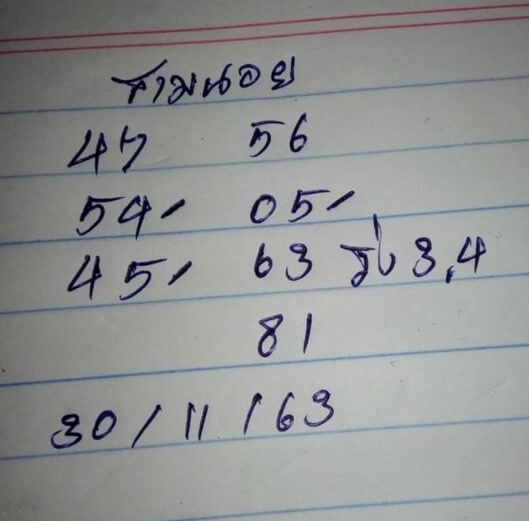 ฮานอย
47 56
54, 05,
45, 63 วิ่ง 3,4
81
30/11/63